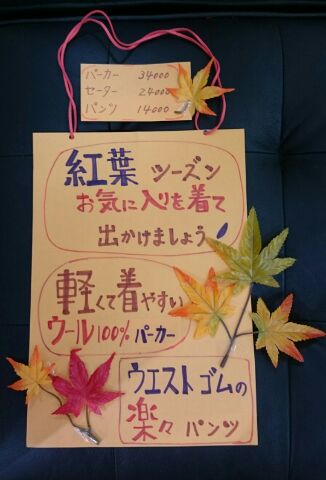 パーカー 34000
セーター 24000
パンツ 14000
紅葉 シーズン
お気に入りを着て
出かけましょう
軽くて着やすい
ウール100% パーカー
ウエスト ゴムの
楽々 パンツ